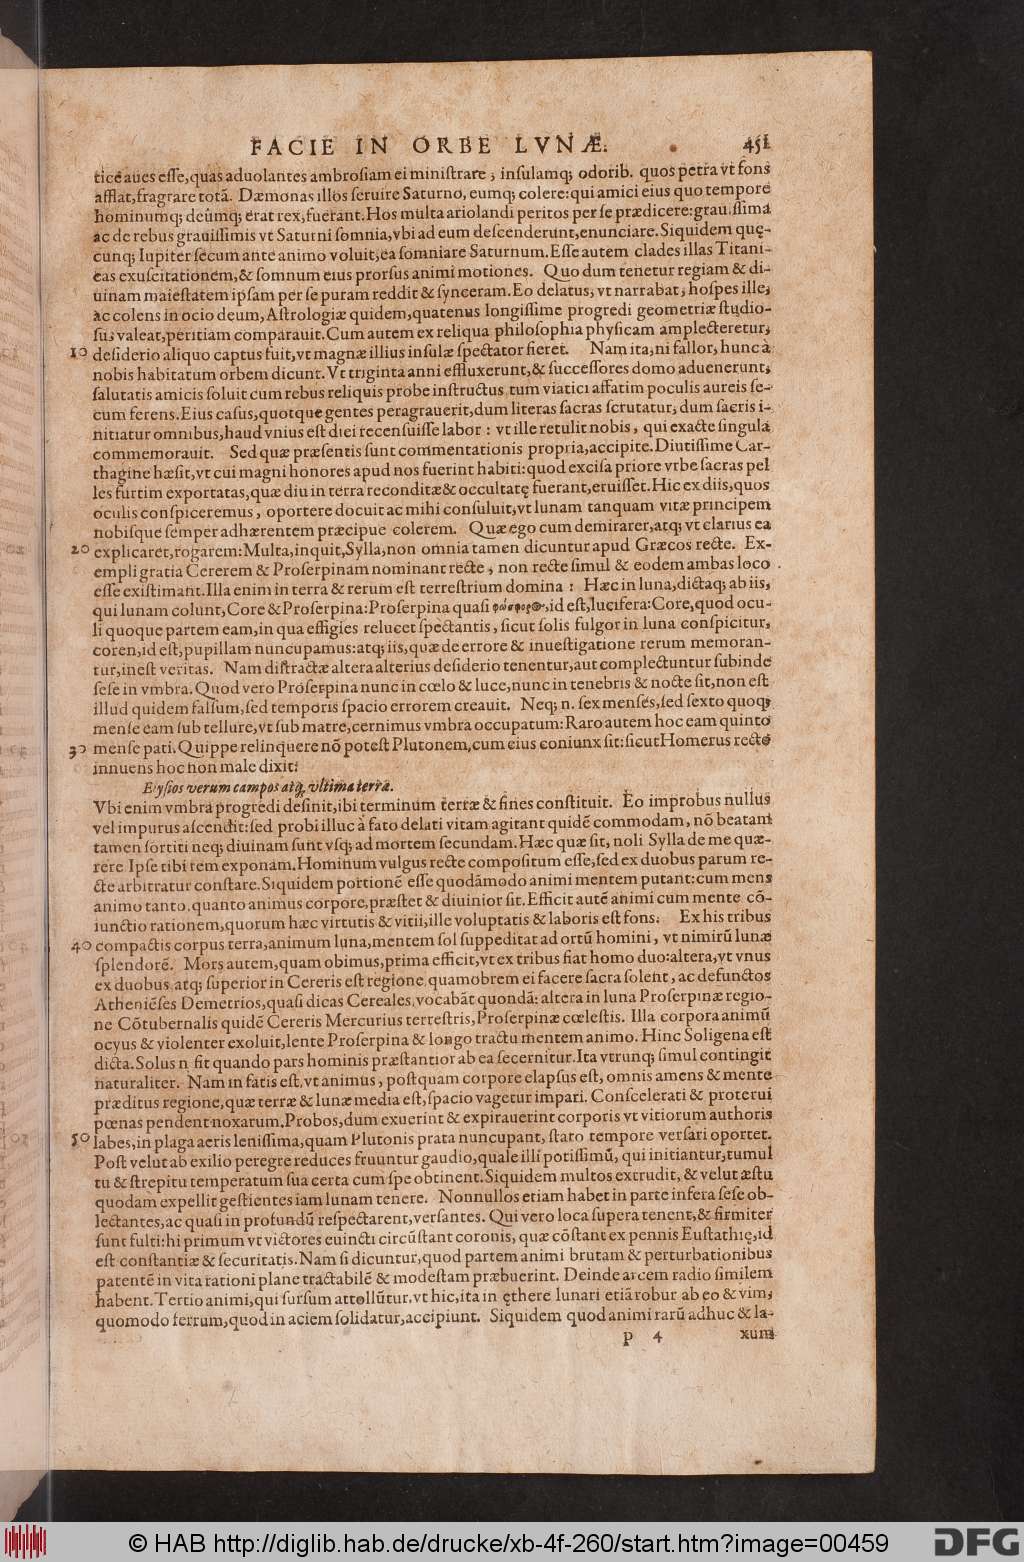 FACIE IN ORBE LVNÆ. 451
ticē aues eſſe, quas aduolantes ambroſiam ei miniſtrare, inſulamq; odorib. quos petra vt fons
afflat, fragrare totā. Dæmonas illos ſeruire Saturno, eumq; colere: qui amici eius quo tempore
hominumq; deûmq; erat rex, fuerant. Hos multa ariolandi peritos per ſe prædicere: grauiſſima
ac de rebus grauiſſimis vt Saturni ſomnia, vbi ad eum deſcenderunt, enunciare. Siquidem quę-
cunq; Iupiter ſecum ante animo voluit, ea ſomniare Saturnum. Eſſe autem clades illas Titani-
cas exuſcitationem, & ſomnum eius prorſus animi motiones. Quo dum tenetur regiam & di-
uinam maieſtatem ipſam per ſe puram reddit & ſynceram. Eo delatus, vt narrabat, hoſpes ille,
ac colens in ocio deum, Aſtrologiæ quidem, quatenus longiſſime progredi geometriæ ſtudio-
ſus valeat, peritiam comparauit. Cum autem ex reliqua philoſophia phyſicam amplecteretur,
10 deſiderio aliquo captus fuit, vt magnæ illius inſulæ ſpectator fieret. Nam ita, ni fallor, hunc à
nobis habitatum orbem dicunt. Vt triginta anni effluxerunt, & ſucceſſores domo aduenerunt,
ſalutatis amicis ſoluit cum rebus reliquis probe inſtructus, tum viatici affatim poculis aureis ſe-
cum ferens. Eius caſus, quotque gentes peragrauerit, dum literas ſacras ſcrutatur, dum ſacris i-
nitiatur omnibus, haud vnius eſt diei recenſuiſſe labor: vt ille retulit nobis, qui exacte ſingula
commemorauit. Sed quæ præſentis ſunt commentationis propria, accipite. Diutiſſime Car-
thagine hæſit, vt cui magni honores apud nos fuerint habiti: quod exciſa priore vrbe ſacras pel
les furtim exportatas, quæ diu in terra reconditæ & occultatę fuerant, eruiſſet. Hic ex diis, quos
oculis conſpiceremus, oportere docuit ac mihi conſuluit, vt lunam tanquam vitæ principem
nobiſque ſemper adhærentem præcipue colerem. Quæ ego cum demirarer, atq; vt clarius ea
20 explicaret, rogarem: Multa, inquit, Sylla, non omnia tamen dicuntur apud Græcos recte. Ex-
empli gratia Cererem & Proſerpinam nominant recte, non recte ſimul & eodem ambas loco
eſſe exiſtimant. Illa enim in terra & rerum eſt terreſtrium domina: Hæc in luna, dictaq; ab iis,
qui lunam colunt, Core & Proſerpina: Proſerpina quaſi φωσφορος, id eſt, lucifera: Core, quod ocu-
li quoque partem eam, in qua effigies relucet ſpectantis, ſicut ſolis fulgor in luna conſpicitur,
coren, id eſt, pupillam nuncupamus: atq; iis, quæ de errore & inueſtigatione rerum memoran-
tur, ineſt veritas. Nam diſtractæ altera alterius deſiderio tenentur, aut complectuntur ſubinde
ſeſe in vmbra. Quod vero Proſerpina nunc in cœlo & luce, nunc in tenebris & nocte ſit, non eſt
illud quidem falſum, ſed temporis ſpacio errorem creauit. Neq; n. ſex menſes, ſed ſexto quoq;
menſe eam ſub tellure, vt ſub matre, cernimus vmbra occupatum: Raro autem hoc eam quinto
30 menſe pati. Quippe relinquere nō poteſt Plutonem, cum eius coniunx ſit: ſicut Homerus recte
innuens hoc non male dixit:
Elyſios verum campos atq; vltima terræ.
Vbi enim vmbra progredi deſinit, ibi terminum terræ & fines conſtituit. Eo improbus nullus
vel impurus aſcendit: ſed probi illuc à fato delati vitam agitant quidē commodam, nō beatam
tamen ſortiti neq; diuinam ſunt vſq; ad mortem ſecundam. Hæc quæ ſit, noli Sylla de me quæ-
rere Ipſe tibi rem exponam. Hominum vulgus recte compoſitum eſſe, ſed ex duobus parum re-
cte arbitratur conſtare. Siquidem portionē eſſe quodāmodo animi mentem putant: cum mens
animo tanto, quanto animus corpore, præſtet & diuinior ſit. Efficit autē animi cum mente cō-
iunctio rationem, quorum hæc virtutis & vitii, ille voluptatis & laboris eſt fons. Ex his tribus
40 compactis corpus terra, animum luna, mentem ſol ſuppeditat ad ortū homini, vt nimirū lunæ
ſplendorē. Mors autem, quam obimus, prima efficit, vt ex tribus fiat homo duo: altera, vt vnus
ex duobus. atq; ſuperior in Cereris eſt regione, quamobrem ei facere ſacra ſolent, ac defunctos
Atheniēſes Demetrios, quaſi dicas Cereales, vocabāt quondā: altera in luna Proſerpinæ regio-
ne Cōtubernalis quidē Cereris Mercurius terreſtris, Proſerpinæ cœleſtis. Illa corpora animū
ocyus & violenter exoluit, lente Proſerpina & longo tractu mentem animo. Hinc Soligena eſt
dicta. Solus n. fit quando pars hominis præſtantior ab ea ſecernitur. Ita vtrunq; ſimul contingit
naturaliter. Nam in fatis eſt, vt animus, poſtquam corpore elapſus eſt, omnis amens & mente
præditus regione, quæ terræ & lunæ media eſt, ſpacio vagetur impari. Conſcelerati & proterui
pœnas pendent noxarum. Probos, dum exuerint & expirauerint corporis vt vitiorum authoris
50 labes, in plaga aeris leniſſima, quam Plutonis prata nuncupant, ſtato tempore verſari oportet.
Poſt velut ab exilio peregre reduces fruuntur gaudio, quale illi potiſſimū, qui initiantur, tumul
tu & ſtrepitu temperatum ſua certa cum ſpe obtinent. Siquidem multos extrudit, & velut æſtu
quodam expellit geſtientes iam lunam tenere. Nonnullos etiam habet in parte infera ſeſe ob-
lectantes, ac quaſi in profundū reſpectarent, verſantes. Qui vero loca ſupera tenent, & firmiter
ſunt fulti: hi primum vt victores euincti circūſtant coronis, quæ cōſtant ex pennis Euſtathię, id
eſt conſtantiæ & ſecuritatis. Nam ſi dicuntur, quod partem animi brutam & perturbationibus
patentē in vita rationi plane tractabilē & modeſtam præbuerint. Deinde arcem radio ſimilem
habent. Tertio animi, qui ſurſum attollūtur, vt hic, ita in ęthere lunari etiā robur ab eo & vim,
quomodo ferrum, quod in aciem ſolidatur, accipiunt. Siquidem quod animi rarū adhuc & la-
p 4 xum
© HAB http://diglib.hab.de/drucke/xb-4f-260/start.htm?image=00459 DFG